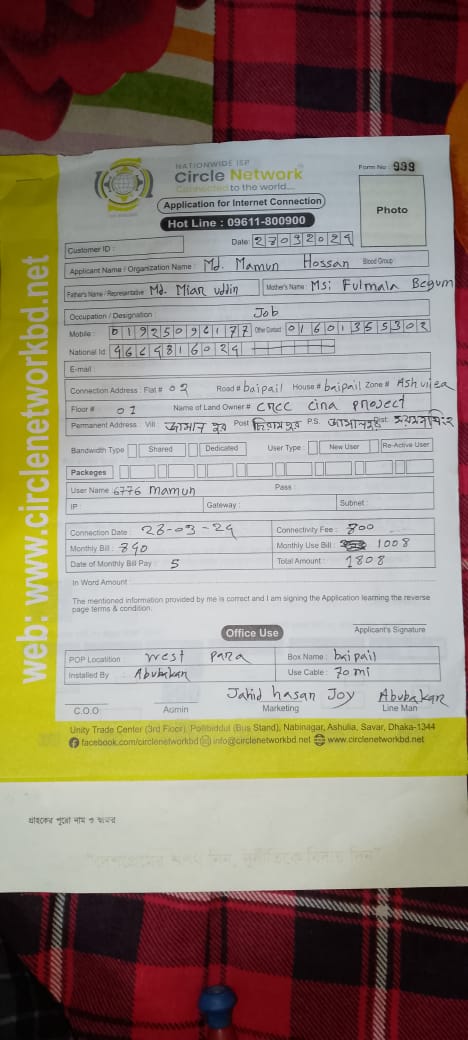 NATIONWIDE ISP
Circle Network
Connected to the world....
Form No : 939
Application for Internet Connection
Hot Line : 09611-800900
Photo
Customer ID :
Date: 23032024
Applicant Name / Organization Name : Md. Mamun Hossan Blood Group :
Father's Name / Representative Md. Mian uddin Mother's Name : Msi Fulmala Begum
Occupation / Designation : Job
Mobile : 01925096177 Other Contact 01601355302
National Id : 4664816024
E-mail :
Connection Address : Flat # 02 Road # baipail House # baipail Zone # Ashuliea
Floor # 01 Name of Land Owner # CRCC cina project
Permanent Address : Vill P.S.
Bandwidth Type Shared Dedicated User Type : New User Re-Active User
Packeges
User Name 6776 mamun Pass :
IP : Gateway : Subnet :
Connection Date : 23-03-24 Connectivity Fee : 800
Monthly Bill : 840 Monthly Use Bill : 1008
Date of Monthly Bill Pay : 5 Total Amount : 1808
In Word Amount :
The mentioned information provided by me is correct and I am signing the Application learning the reverse
page terms & condition.
Office Use
Applicant's Signature
POP Locatition west para Box Name : baipail
Installed By Abubakan Use Cable : 70 mi
Jahid hasan Joy Abubakan
C.O.O. Admin Marketing Line Man
Unity Trade Center (3rd Floor), Pollibiddut (Bus Stand), Nabinagar, Ashulia, Savar, Dhaka-1344
facebook.com/circlenetworkbd info@circlenetworkbd.net www.circlenetworkbd.net
web: www.circlenetworkbd.net
গ্রাহকের পুরো নাম ও স্বাক্ষর